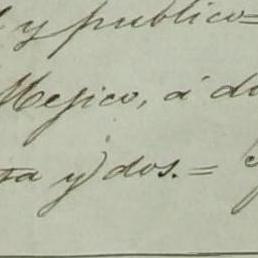 y publico=
Mejico, á d
ta y dos.=